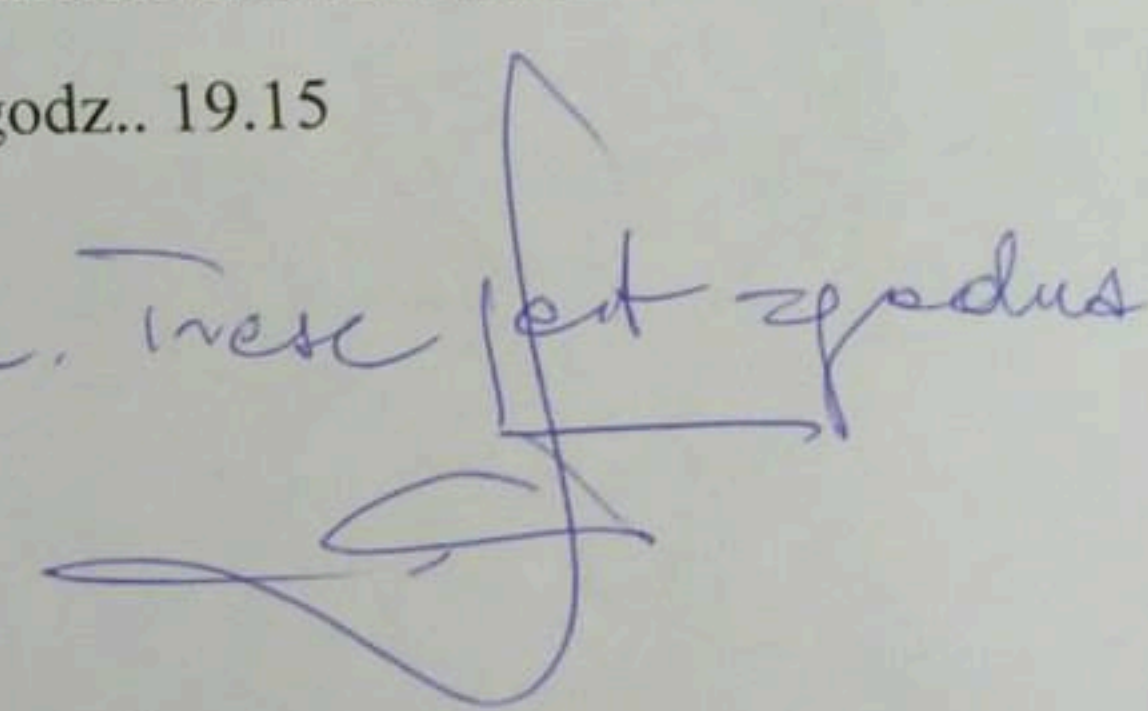 godz.. 19.15
. Treść jest zgodna